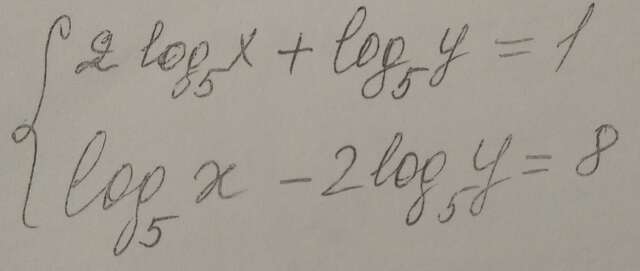 2 log₅x + log₅y = 1
log₅x - 2log₅y = 8